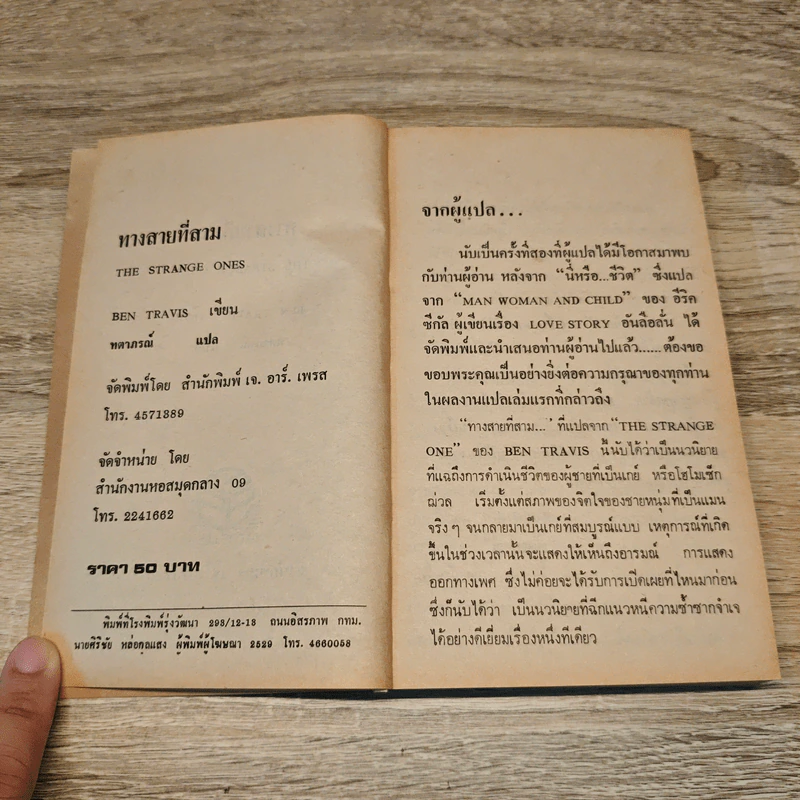 ทางสายที่สาม
THE STRANGE ONES
BEN TRAVIS เขียน
หตาภรณ์ แปล
จัดพิมพ์โดย สำนักพิมพ์ เจ. อาร์. เพรส
โทร. 4571389
จัดจำหน่าย โดย
สำนักงานหอสมุดกลาง 09
โทร. 2241662
ราคา 50 บาท
พิมพ์ที่โรงพิมพ์รุ่งวัฒนา 293/12-13 ถนนอิสรภาพ กทม.
นายศิริชัย หล่อกุลแสง ผู้พิมพ์ผู้โฆษณา 2529 โทร. 4660058
จากผู้แปล...
นับเป็นครั้งที่สองที่ผู้แปลได้มีโอกาสมาพบ
กับท่านผู้อ่าน หลังจาก “นี่หรือ...ชีวิต” ซึ่งแปล
จาก “MAN WOMAN AND CHILD” ของ อีริค
ซีกัล ผู้เขียนเรื่อง LOVE STORY อันลือลั่น ได้
จัดพิมพ์และนำเสนอท่านผู้อ่านไปแล้ว......ต้องขอ
ขอบพระคุณเป็นอย่างยิ่งต่อความกรุณาของทุกท่าน
ในผลงานแปลเล่มแรกที่กล่าวถึง
“ทางสายที่สาม...’ ที่แปลจาก “THE STRANGE
ONE” ของ BEN TRAVIS นี้นับได้ว่าเป็นนวนิยาย
ที่แฉถึงการดำเนินชีวิตของผู้ชายที่เป็นเกย์ หรือโฮโมเซ็ก
ฌ่วล เริ่มตั้งแต่สภาพของจิตใจของชายหนุ่มที่เป็นแมน
จริง ๆ จนกลายมาเป็นเกย์ที่สมบูรณ์แบบ เหตุการณ์ที่เกิด
ขึ้นในช่วงเวลานั้นจะแสดงให้เห็นถึงอารมณ์ การแสดง
ออกทางเพศ ซึ่งไม่ค่อยจะได้รับการเปิดเผยที่ไหนมาก่อน
ซึ่งก็นับได้ว่า เป็นนวนิยายที่ฉีกแนวหนีความซ้ำซากจำเจ
ได้อย่างดีเยี่ยมเรื่องหนึ่งทีเดียว